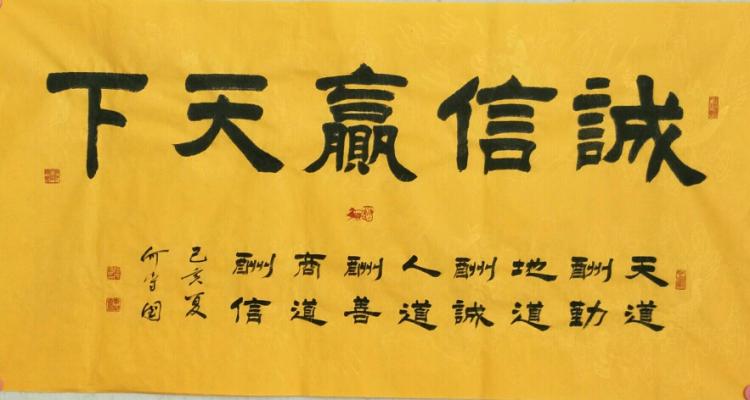 誠信贏天下
天道
酬勤
地道
酬誠
人道
酬善
商道
酬信
己亥夏
何守国